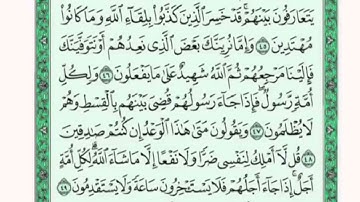 يَتَعَارَفُونَ بَيْنَهُمْ ۚ قَدْ خَسِرَ الَّذِينَ كَذَّبُوا بِلِقَاءِ اللَّهِ وَمَا كَانُوا
مُهْتَدِينَ ٤٥ وَإِمَّا نُرِيَنَّكَ بَعْضَ الَّذِي نَعِدُهُمْ أَوْ نَتَوَفَّيَنَّكَ
فَإِلَيْنَا مَرْجِعُهُمْ ثُمَّ اللَّهُ شَهِيدٌ عَلَىٰ مَا يَفْعَلُونَ ٤٦ وَلِكُلِّ
أُمَّةٍ رَسُولٌ ۖ فَإِذَا جَاءَ رَسُولُهُمْ قُضِيَ بَيْنَهُمْ بِالْقِسْطِ وَهُمْ
لَا يُظْلَمُونَ ٤٧ وَيَقُولُونَ مَتَىٰ هَٰذَا الْوَعْدُ إِنْ كُنْتُمْ صَادِقِينَ
٤٨ قُلْ لَا أَمْلِكُ لِنَفْسِي ضَرًّا وَلَا نَفْعًا إِلَّا مَا شَاءَ اللَّهُ ۗ لِكُلِّ أُمَّةٍ
أَجَلٌ ۚ إِذَا جَاءَ أَجَلُهُمْ فَلَا يَسْتَأْخِرُونَ سَاعَةً وَلَا يَسْتَقْدِمُونَ ٤٩